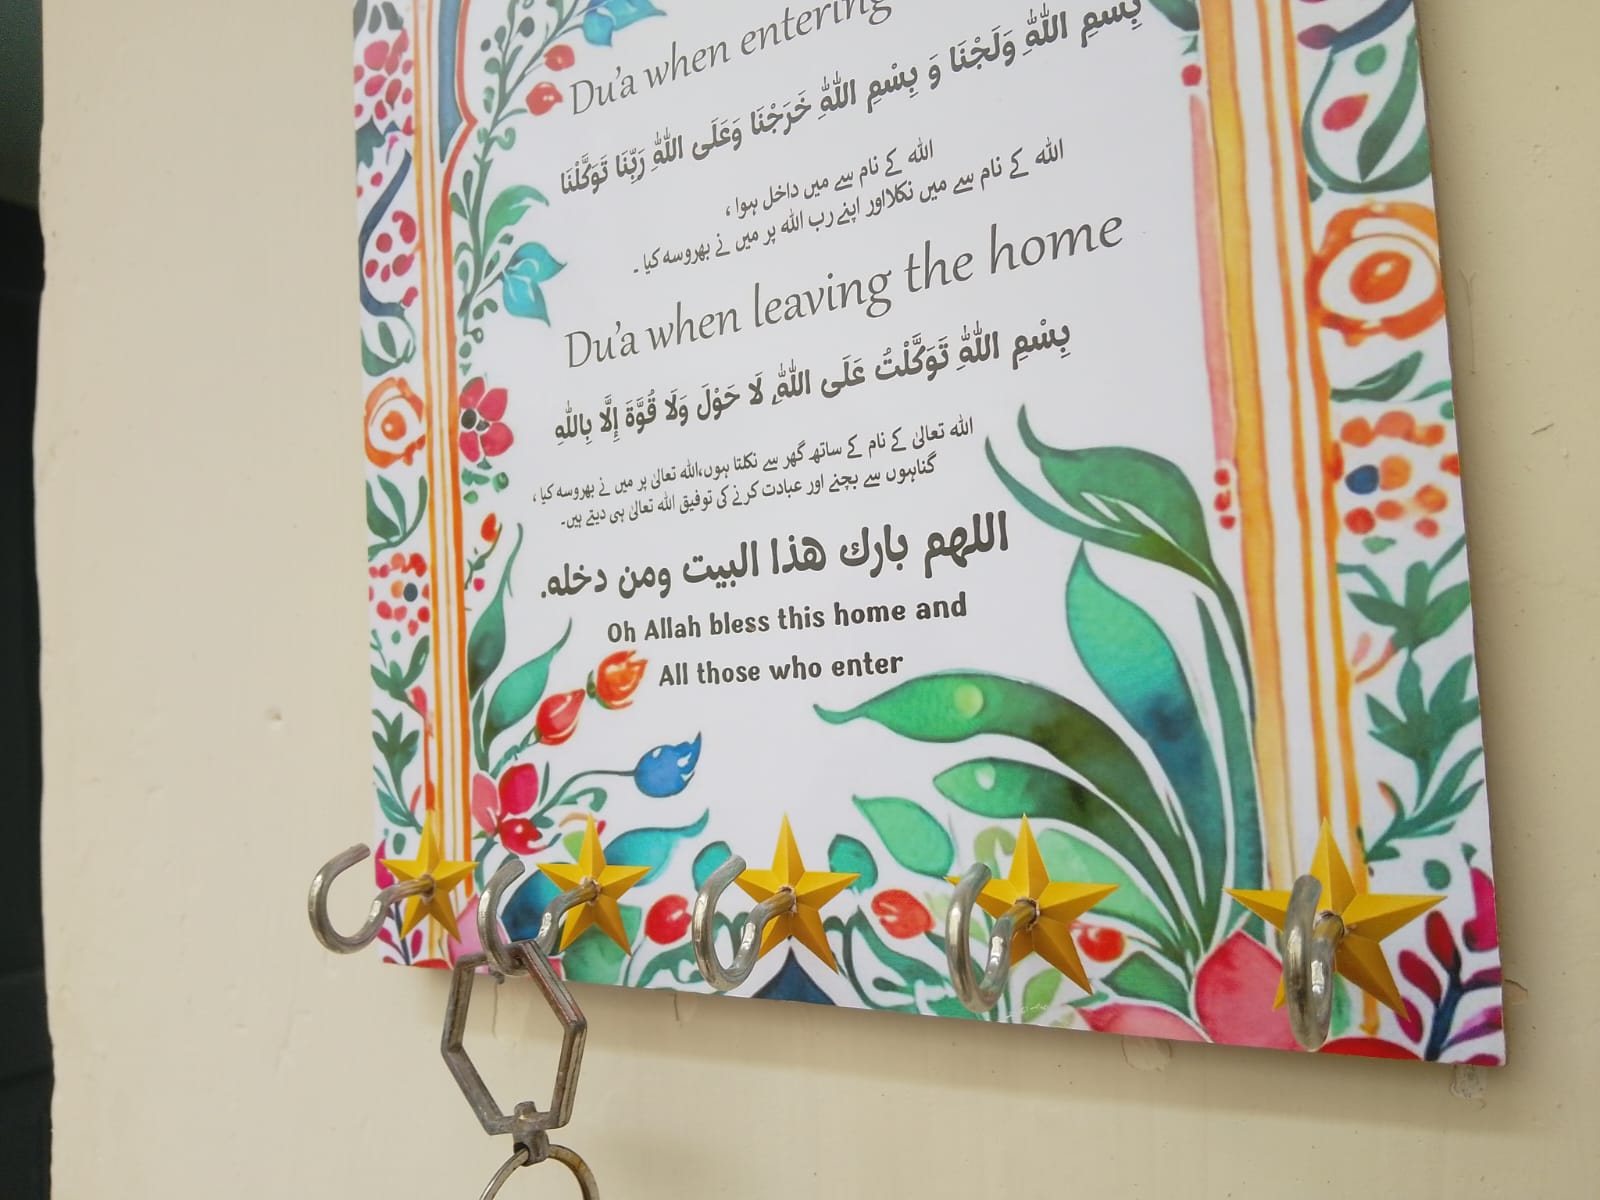 Du'a when entering
بِسْمِ اللّٰهِ وَلَجْنَا وَ بِسْمِ اللّٰهِ خَرَجْنَا وَعَلَى اللّٰهِ رَبِّنَا تَوَكَّلْنَا
اللہ کے نام سے میں داخل ہوا ،
اللہ کے نام سے میں نکلااور اپنے رب اللہ پر میں نے بھروسہ کیا ۔
Du'a when leaving the home
بِسْمِ اللّٰهِ تَوَكَّلْتُ عَلَى اللّٰهِ، لَا حَوْلَ وَلَا قُوَّةَ إِلَّا بِاللّٰهِ
اللہ تعالیٰ کے نام کے ساتھ گھر سے نکلتا ہوں،اللہ تعالیٰ پر میں نے بھروسہ کیا ،
گناہوں سے بچنے اور عبادت کرنے کی توفیق اللہ تعالیٰ ہی دیتے ہیں۔
اللهم بارك هذا البيت ومن دخله.
Oh Allah bless this home and
All those who enter